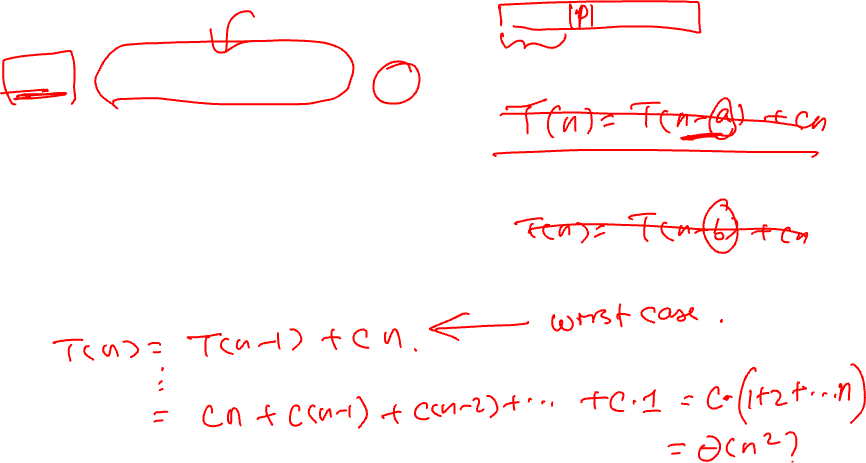 P
T(n) = T(n-a) + cn
T(n) = T(n-b) + cn
T(n) = T(n-1) + cn. ← worst case.
⋮
= cn + c(n-1) + c(n-2) + ... + c·1 = c·(1+2+...n)
= Θ(n²)